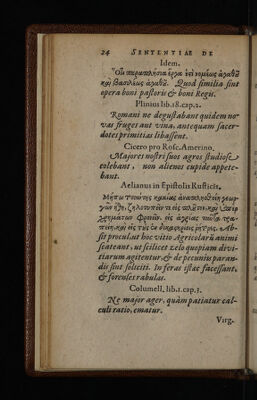 24 SENTENTIAE DE
Idem.
Ὅτι παραπλήσια ἔργα ἐστὶ νομέως ἀγαθοῦ
καὶ βασιλέως ἀγαθοῦ. Quod similia sint
opera boni pastoris & boni Regis.
Plinius lib.18.cap.2.
Romani ne degustabant quidem no-
vas fruges aut vina, antequam sacer-
dotes primitias libassent.
Cicero pro Rosc. Amerino.
Majores nostri suos agros studiose
colebant, non alienos cupide appete-
bant.
Aelianus in Epistolis Rusticis.
τοιαύτης κακίας γεωρ-
Ab-
sit procul ut hoc vitio Agricolarũ animi
scateant, ut scilicet zelo quopiam divi-
tiarum agitentur, & de pecuniis paran-
dis sint soliciti. In feras istæc facessant,
& forenses rabulas.
Columell. lib.1.cap.3.
Ne major ager, quàm patiatur cal-
culi ratio, ematur.
Virg.